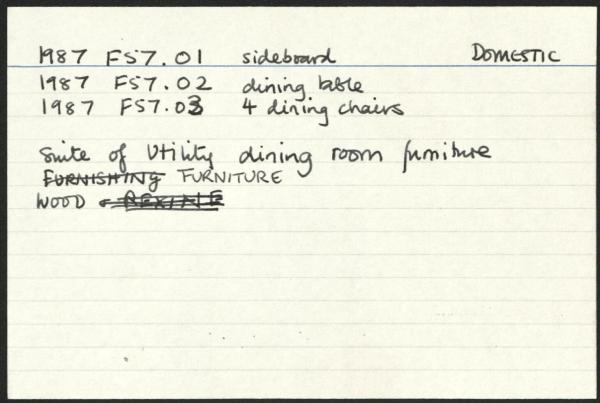 1987 FS7.01 sideboard DOMESTIC
1987 FS7.02 dining table
1987 FS7.03 4 dining chairs
Suite of Utility dining room furniture
FURNISHING FURNITURE
WOOD & REXINE